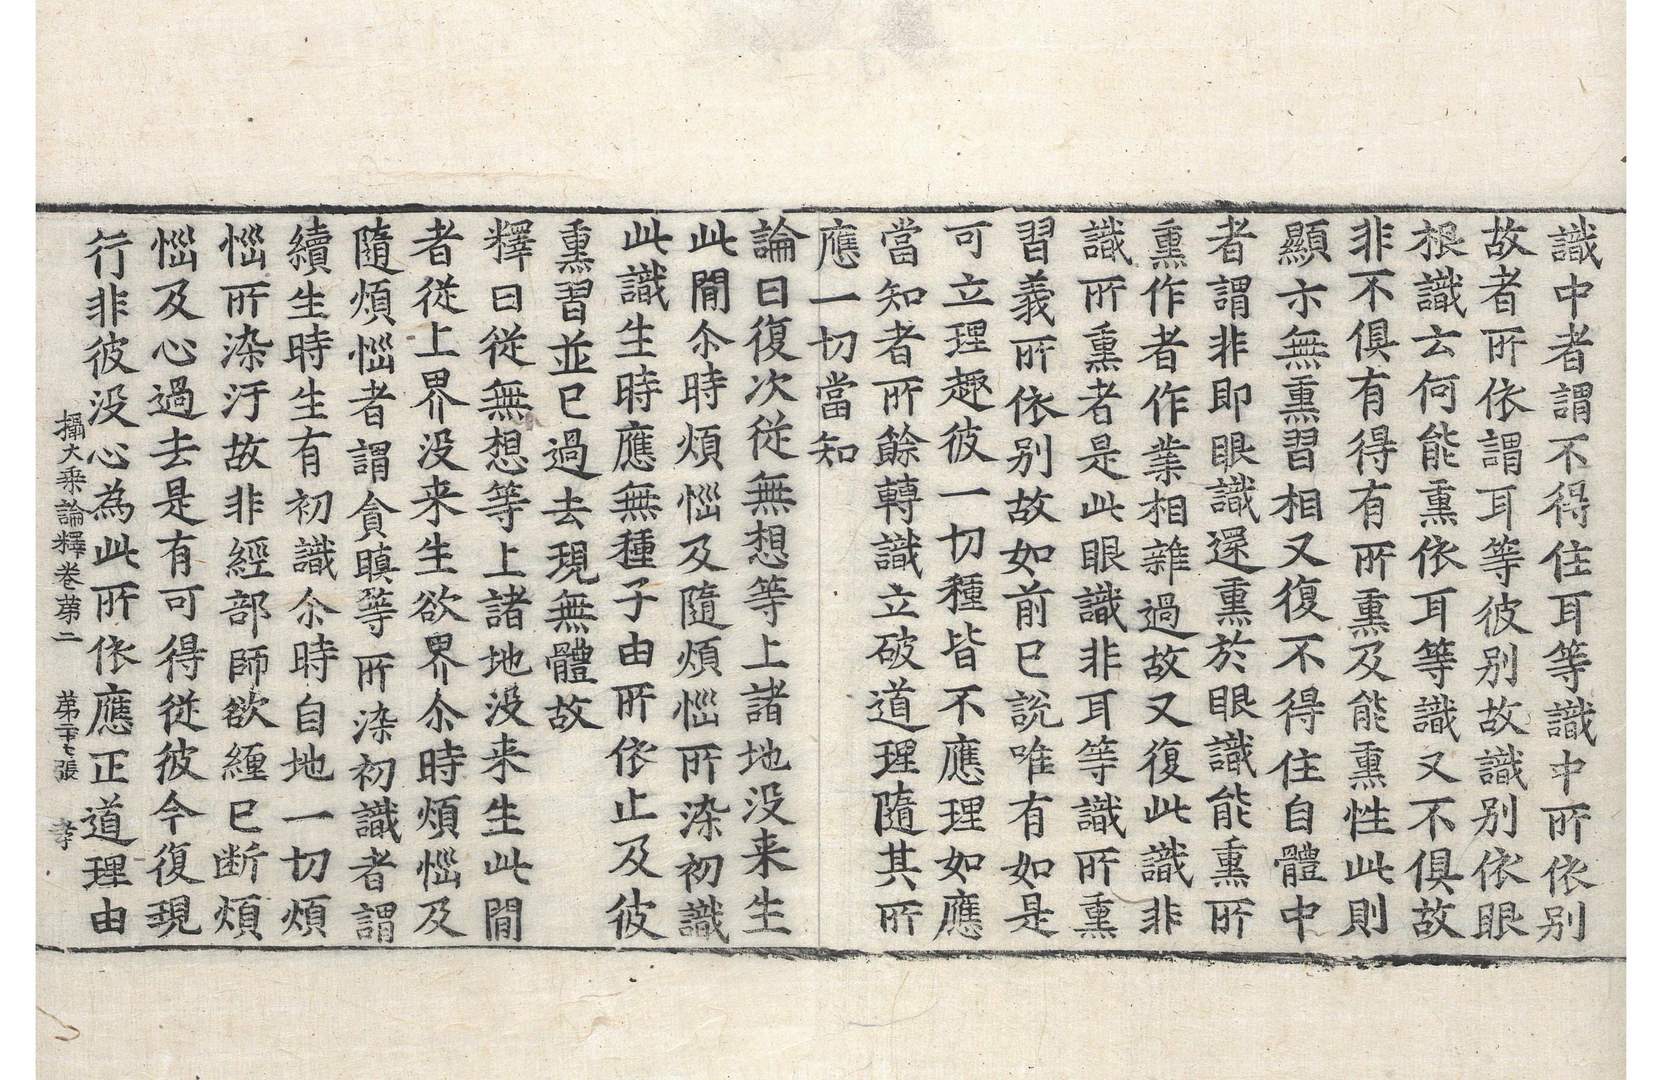 識中者謂不得住耳等識中所依别
故者所依謂耳等彼别故識别依眼
根識云何能熏依耳等識又不俱故
非不俱有得有所熏及能熏性此則
顯亦無熏習相又復不得住自體中
者謂非即眼識還熏於眼識能熏所
熏作者作業相雜過故又復此識非
識所熏者是此眼識非耳等識所熏
習義所依别故如前已說唯有如是
可立理趣彼一切種皆不應理如應
當知者所餘轉識立破道理隨其所
應一切當知
論曰復次從無想等上諸地没来生
此閒尒時煩惱及隨煩惱所染初識
此識生時應無種子由所依止及彼
熏習並已過去現無體故
釋曰從無想等上諸地没来生此閒
者從上界没来生欲界尒時煩惱及
隨煩惱者謂貪瞋等所染初識者謂
續生時生有初識尒時自地一切煩
惱所染汙故非經部師欲纏已断煩
惱及心過去是有可得從彼今復現
行非彼没心為此所依應正道理由
攝大乘論釋卷第二 第二十七張 孝